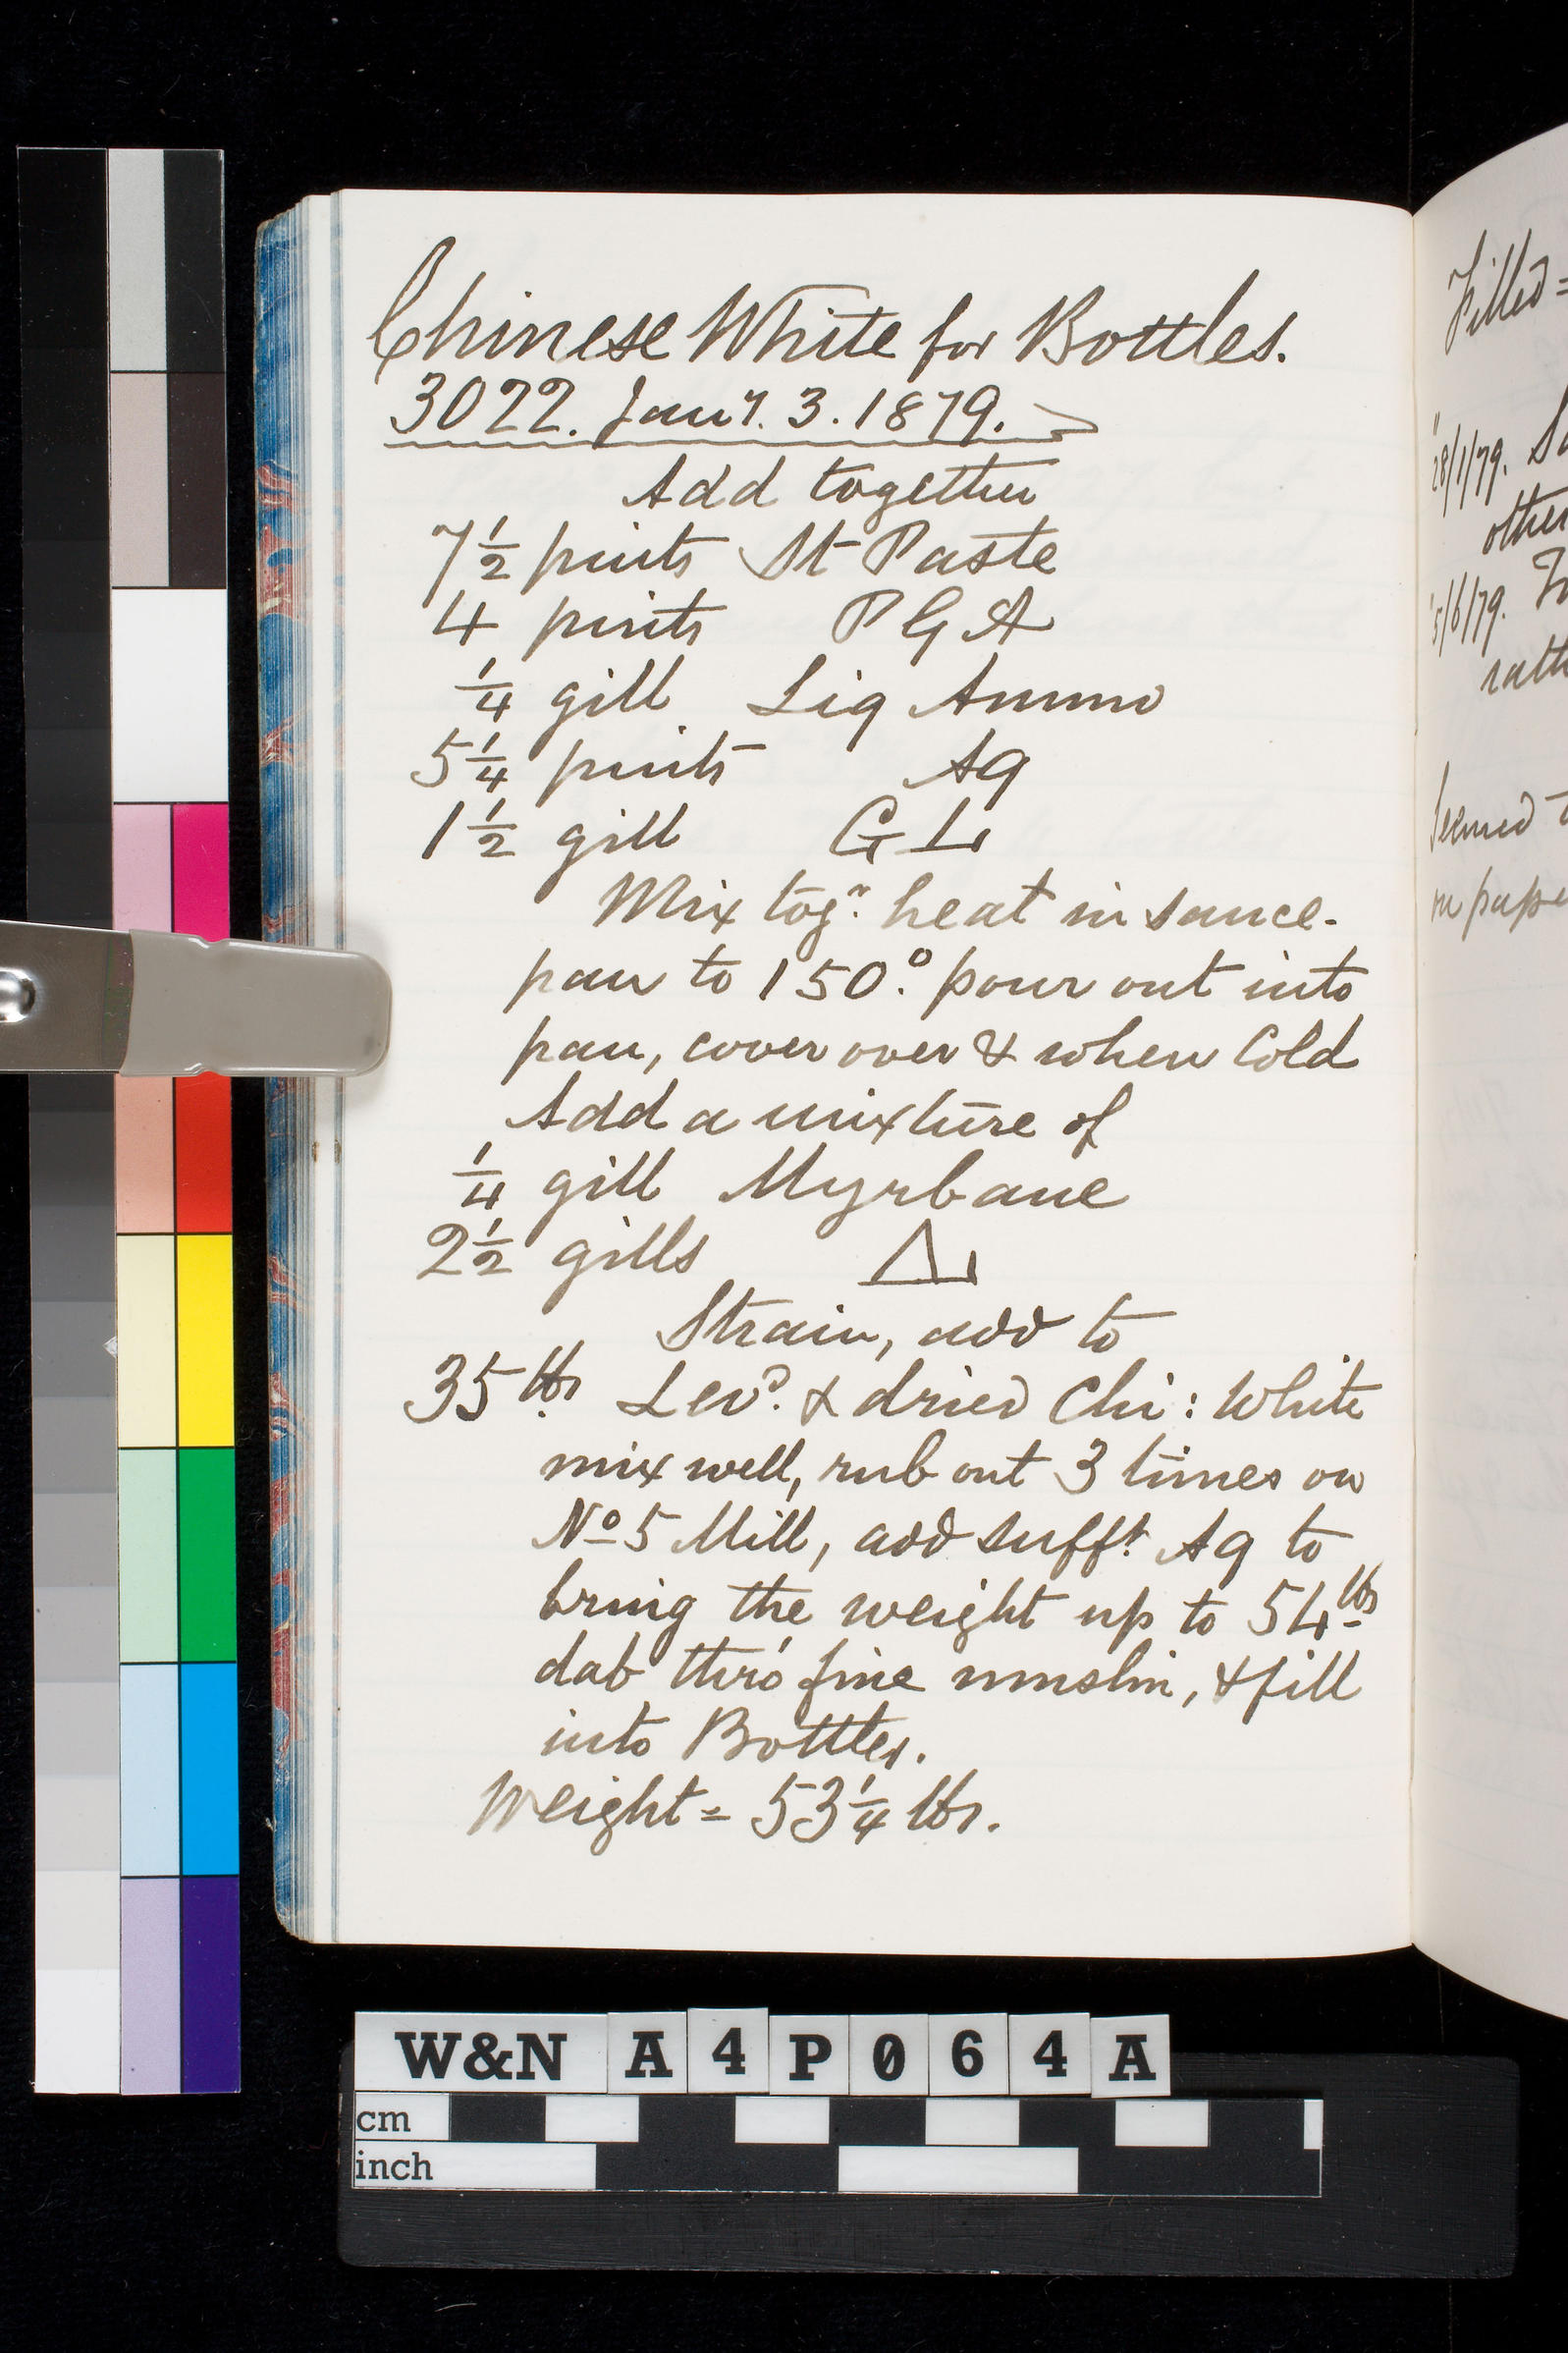 Chinese White for Bottles.
3022. Jany. 3. 1879.
Add together
7 1/2 pints St Paste
4 pints P G A
1/4 gill Liq Ammo
5 1/4 pints Aq
1 1/2 gill G L
Mix togr. heat in sauce-
pan to 150°. pour out into
pan, cover over & when Cold
Add a mixture of
1/4 gill Myrbane
2 1/2 gills
Strain, add to
35 lbs Levd. & dried Chi: White
mix well, rub out 3 times on
No 5 Mill, add sufft. Aq to
bring the weight up to 54 lbs
dab thro' fine muslin, & fill
into Bottles.
Weight = 53 1/4 lbs.
Filled =
28/1/79. So
other
5/6/79.
rath
Seemed
on pape
W&N A4P064A
cm
inch